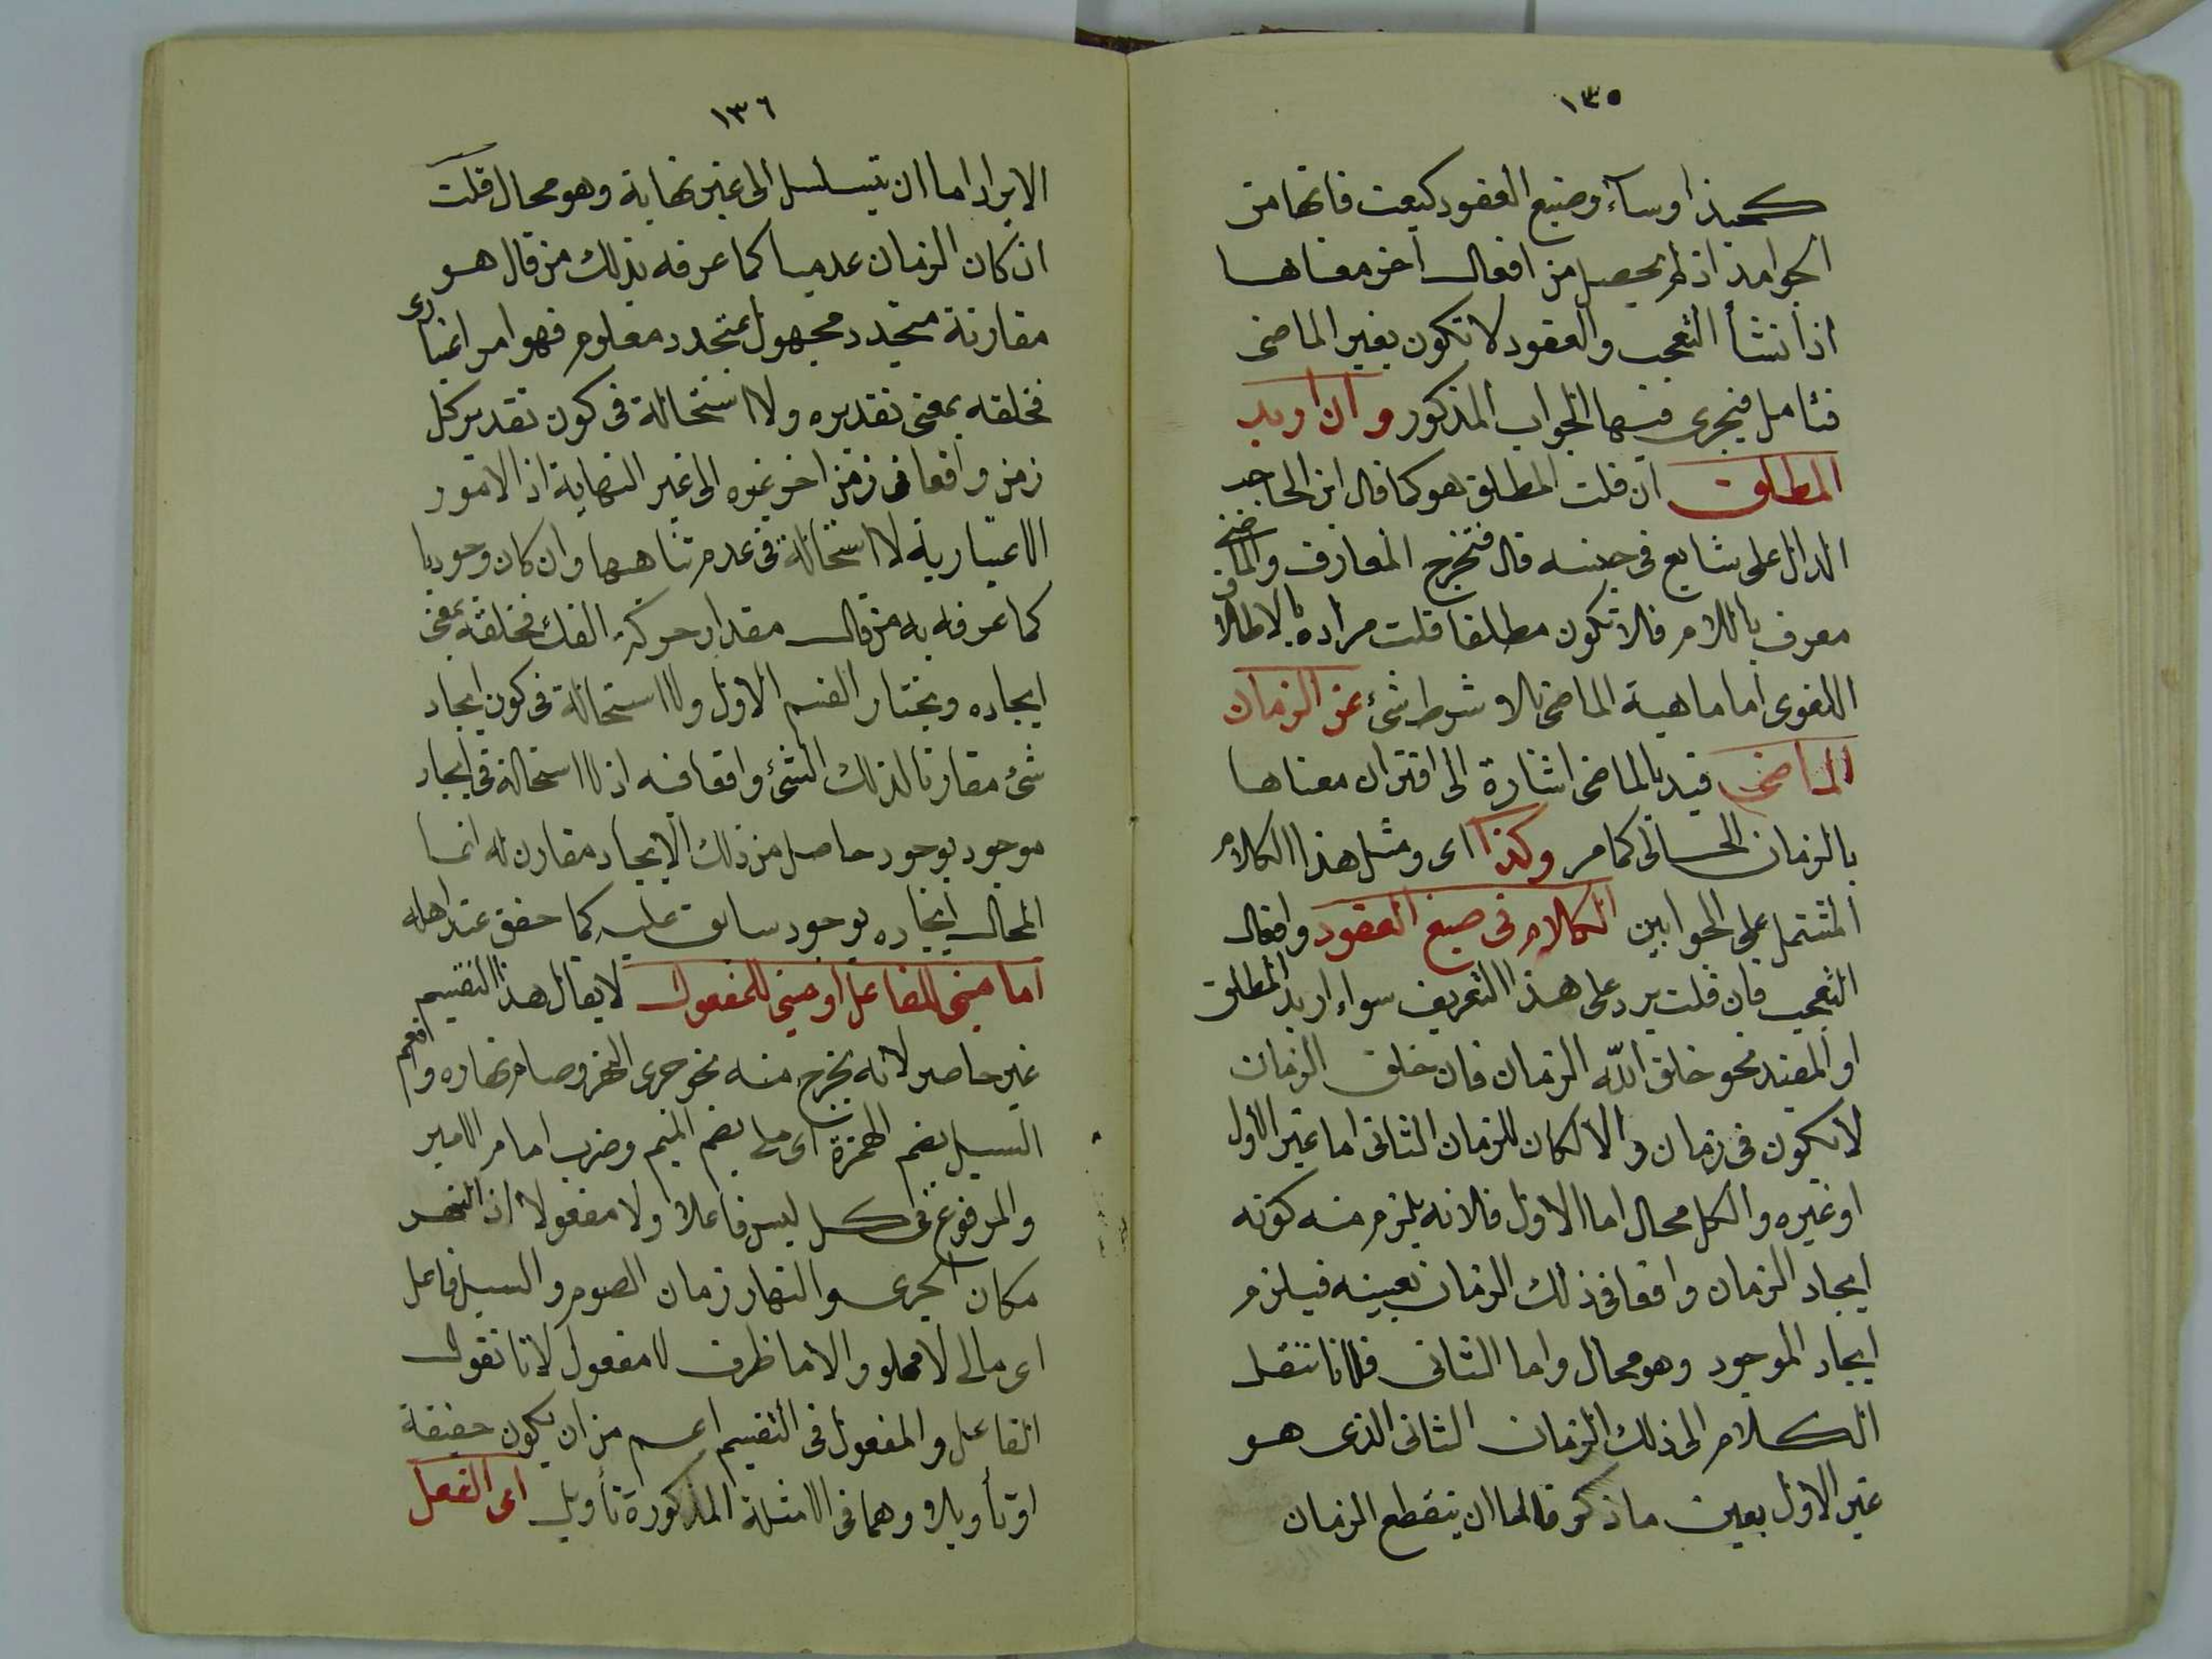 ١٣٥
كحبذا وساء وصيغ العقود كبعت فانها من
الجوامد اذ لم يحصل من افعال اخر معناها
اذ انشأ التعجب والعقود لا تكون بغير الماضى
فتامل فيجرى فيها الجواب المذكور وان اريد
المطلق ان قلت المطلق هو كما قال ابن الحاجب
الدال على شايع فى جنسه قال فتخرج المعارف والماضى
معرف باللام فلا تكون مطلقا قلت مراده بالاطلاق
اللغوى اما ماهية الماضى بلا شرط شئ عن الزمان
الماضى قيد بالماضى اشارة الى اقتران معناها
بالزمان الحالى كما مر وكذا اى ومثل هذا الكلام
المشتمل على الجوابين الكلام فى صيغ العقود وافعال
التعجب فان قلت يرد على هذا التعريف سواء اريد المطلق
او المقيد نحو خلق الله الزمان فان خلق الزمان
لا يكون فى زمان والا لكان للزمان الثانى اما عين الاول
او غيره والكل محال اما الاول فلانه يلزم منه كونه
ايجاد الزمان واقعا فى ذلك الزمان بعينه فيلزم
ايجاد الموجود وهو محال واما الثانى فلانا ننقل
الكلام الى ذلك الزمان الثانى الذى هو
غير الاول بعين ما ذكر فاما ان ينقطع الزمان
١٣٦
الايراد اما ان يتسلسل الى غير نهاية وهو محال قلت
ان كان الزمان عدميا كما عرفه بذلك من قال هو
مقارنة متجدد مجهول بمتجدد معلوم فهو امر اعتبارى
فخلقه بمعنى تقديره ولا استحالة فى كون تقدير كل
زمن واقعا فى زمن اخر غيره الى غير النهاية اذ الامور
الاعتبارية لا استحالة فى عدم تناهيها وان كان وجوديا
كما عرفه به من قال مقدار حركة الفلك فخلقه بمعنى
ايجاده ونختار القسم الاول ولا استحالة فى كون ايجاد
شئ مقارنا لذلك الشئ واقعا فيه اذ لا استحالة فى ايجاد
موجود بوجود حاصل من ذلك الايجاد مقارن له انما
المحال ايجاده بوجود سابق عليه كما حقق عند اهله
اما مبنى للفاعل او مبنى للمفعول لا يقال هذا التقسيم
غير حاصر لانه يخرج منه نحو جرى النهر وصام نهاره وافعم
السيل بضم الهمزة اى ملئ بضم الميم وضرب امام الامير
والمرفوع فى كل ليس فاعلا ولا مفعولا اذ النهر
مكان الجرى والنهار زمان الصوم والسيل فاعل
اى مالى لا مملو والامام ظرف لا مفعول لانا نقول
الفاعل والمفعول فى التقسيم اعم من ان يكون حقيقة
او تأويلا وهما فى الامثلة المذكورة تأويل اى الفعل